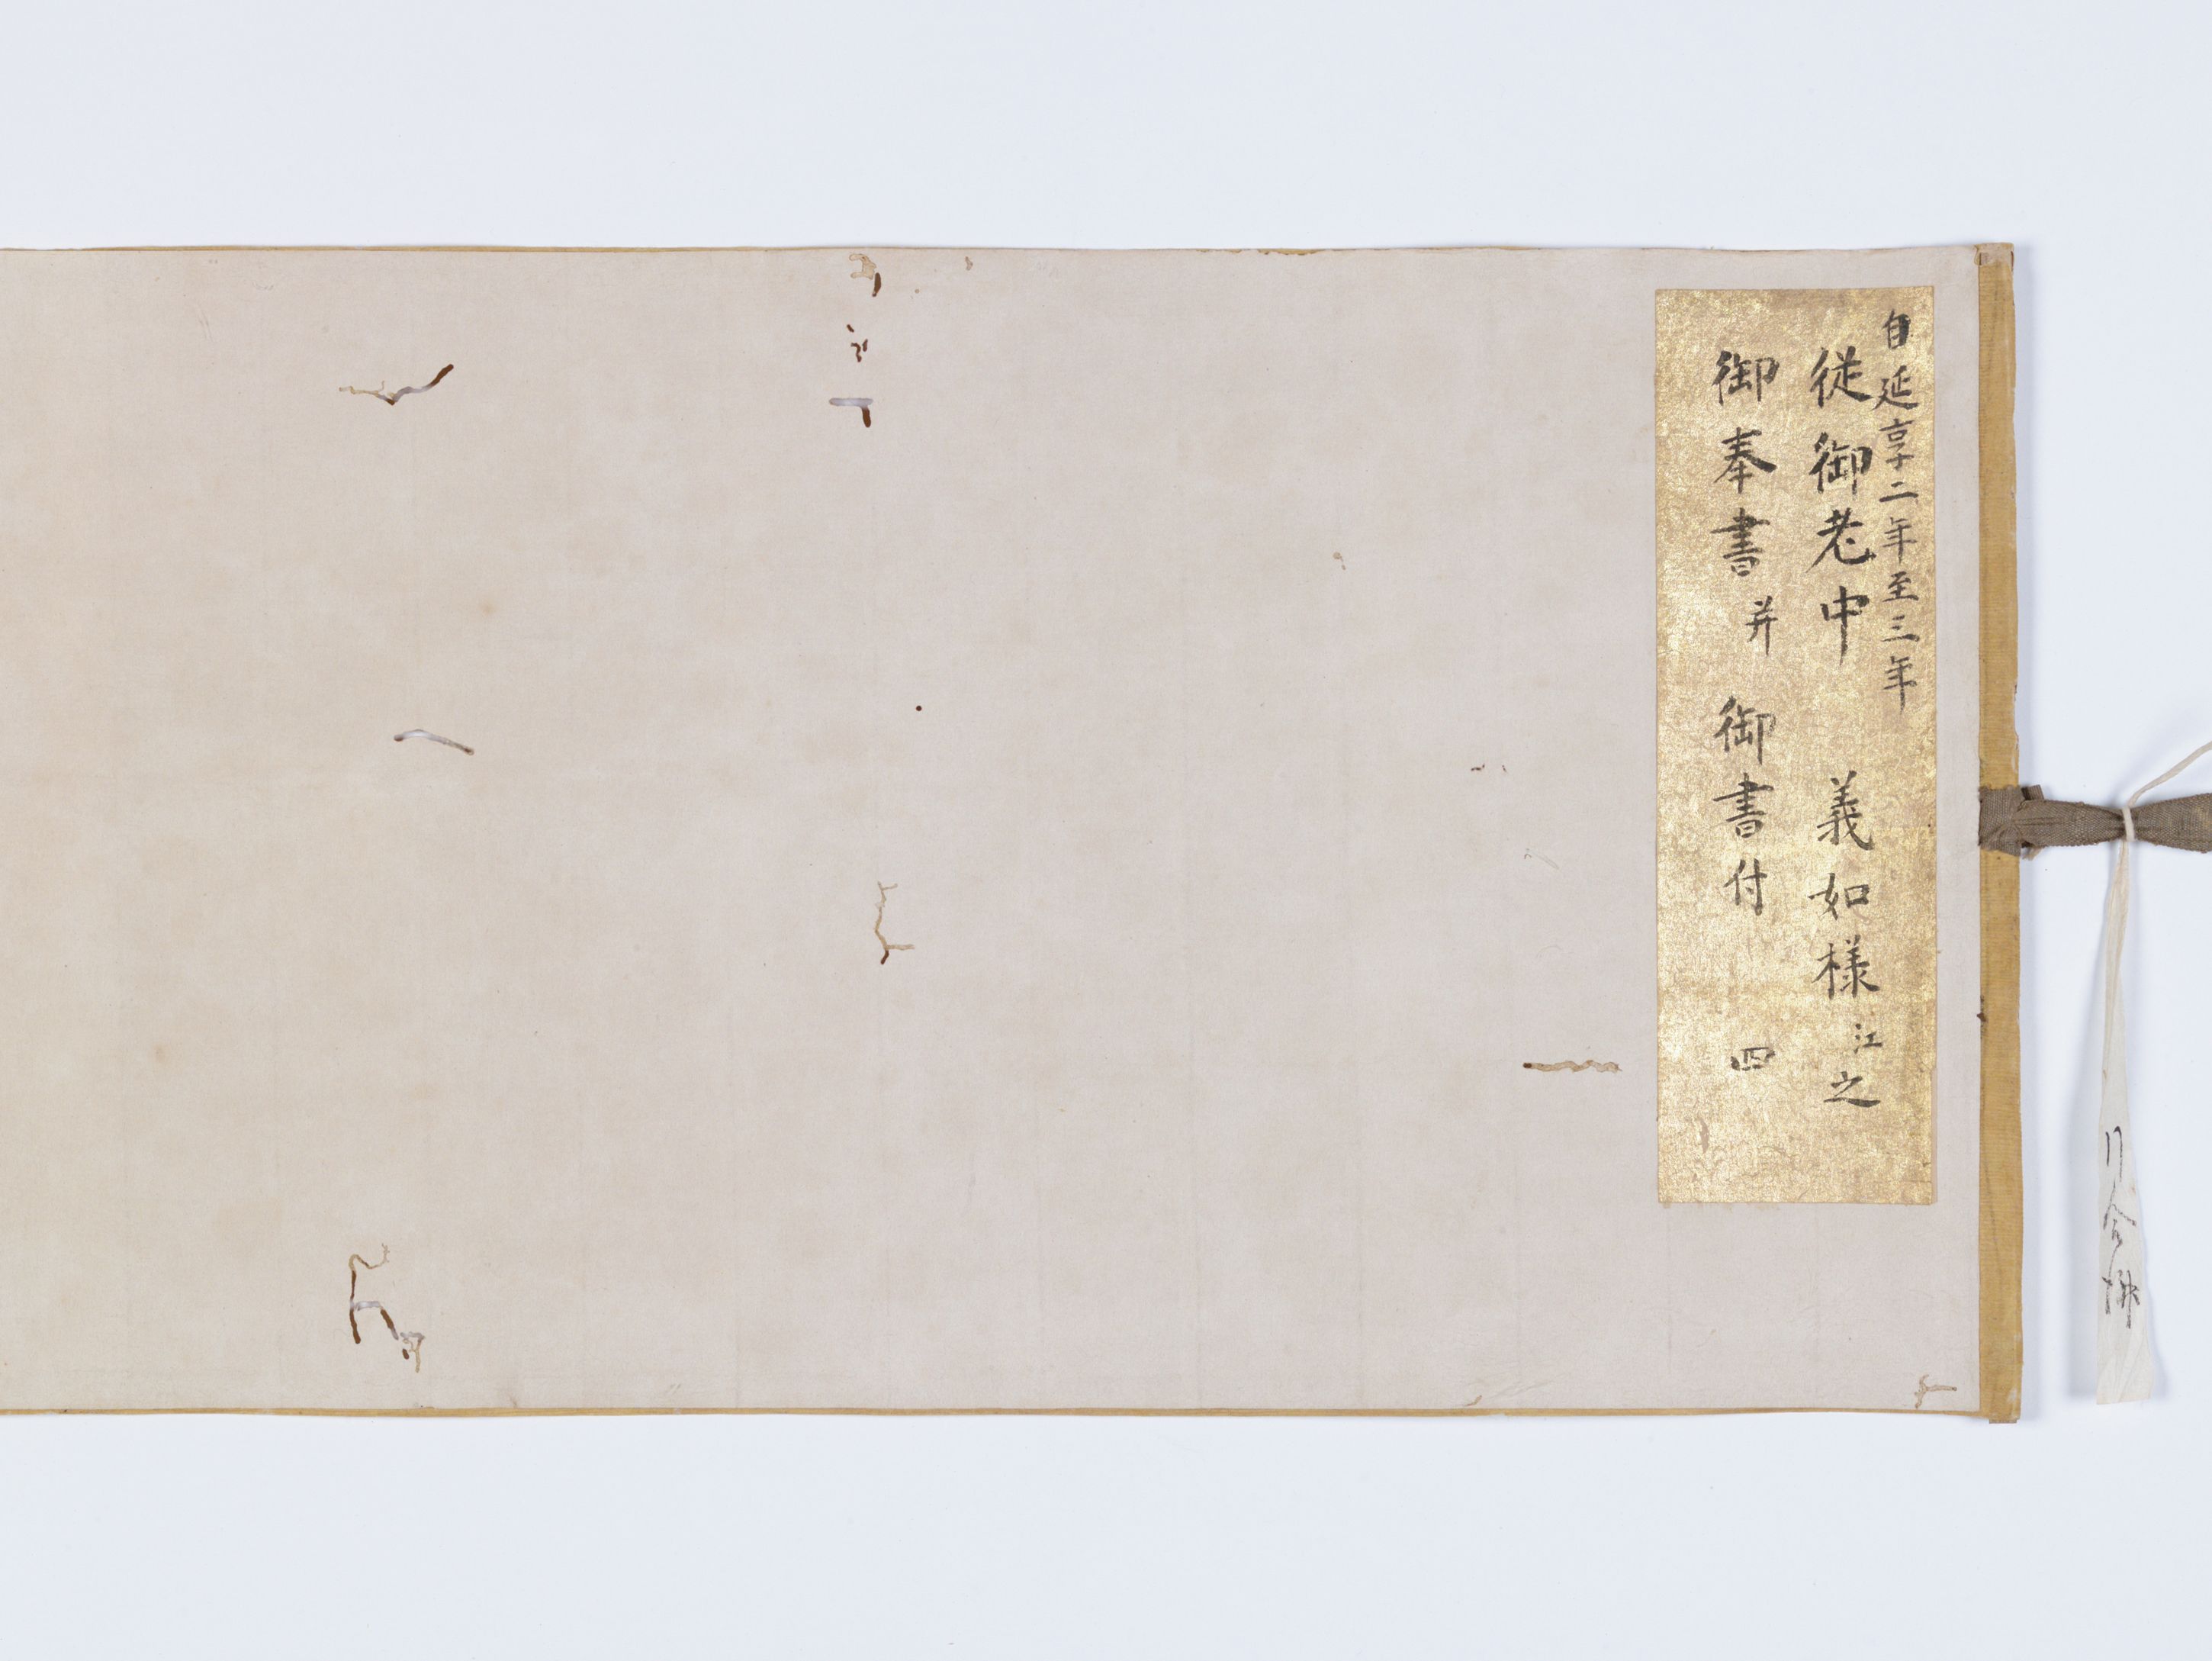 自延享二年至三年
従御老中　義如様江之
御奉書并　御書付　四